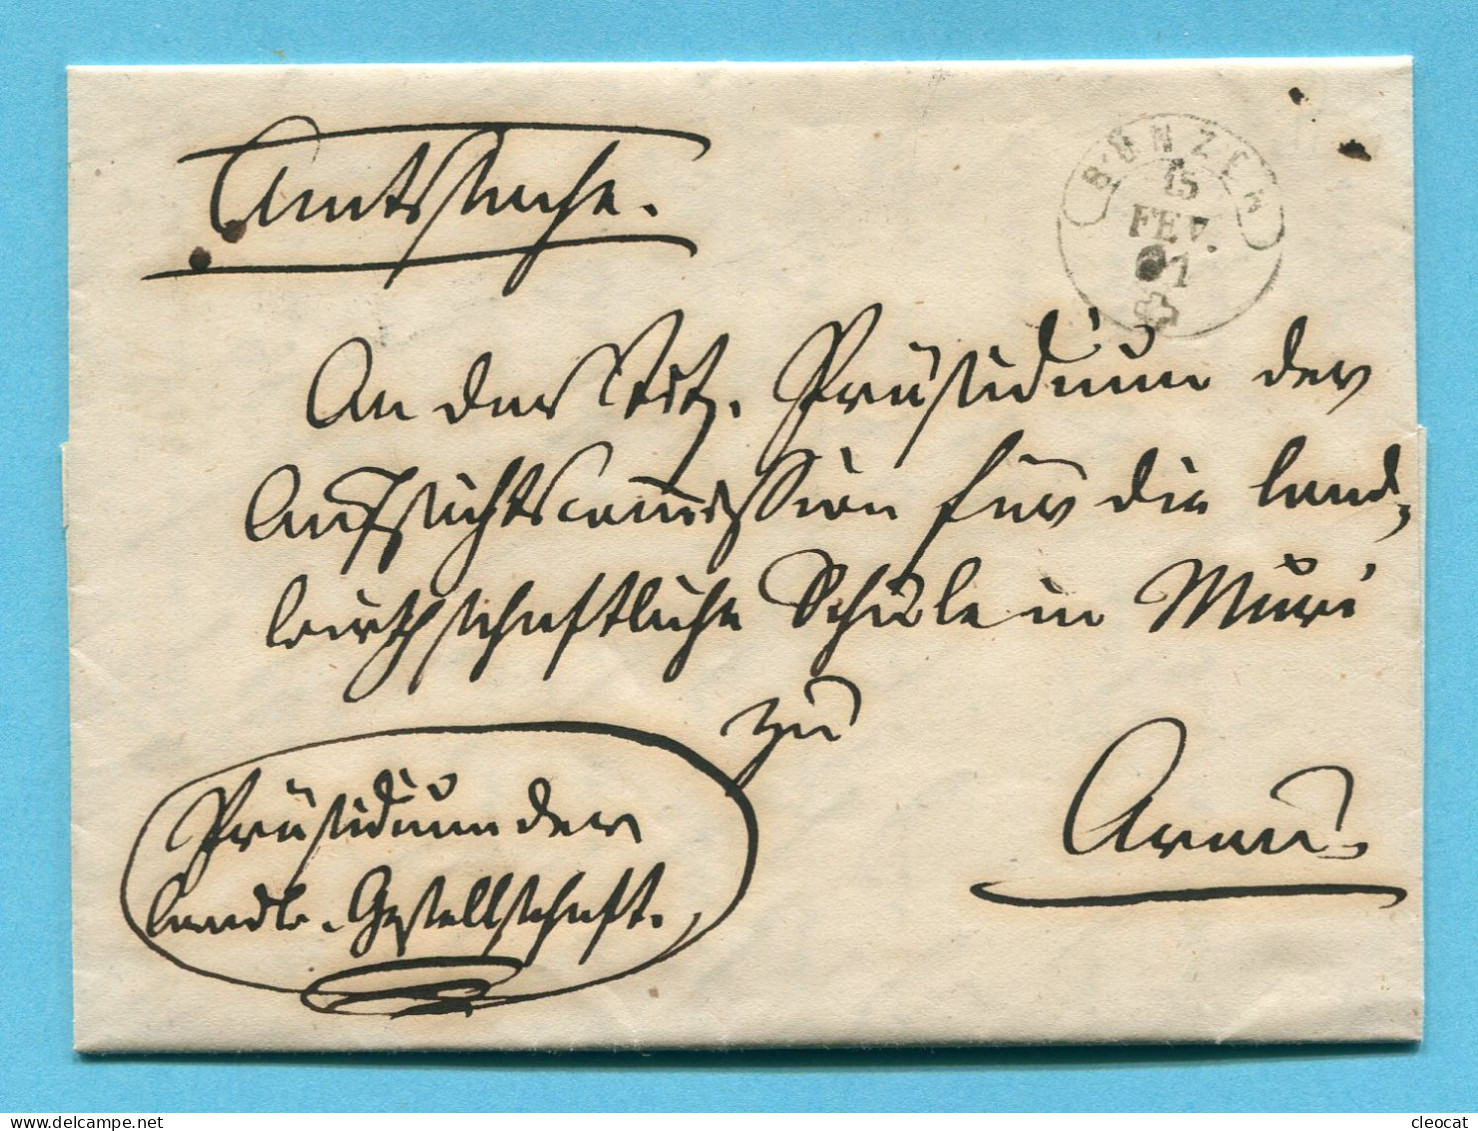 Amtssache.
BÜNZEN
15
FEV.
An das Tit. Präsidium der
Aufsichtscommission für die land-
wirthschaftliche Schule in Muri
zu
Präsidium der
landw. Gesellschaft.
Aarau
cleocat